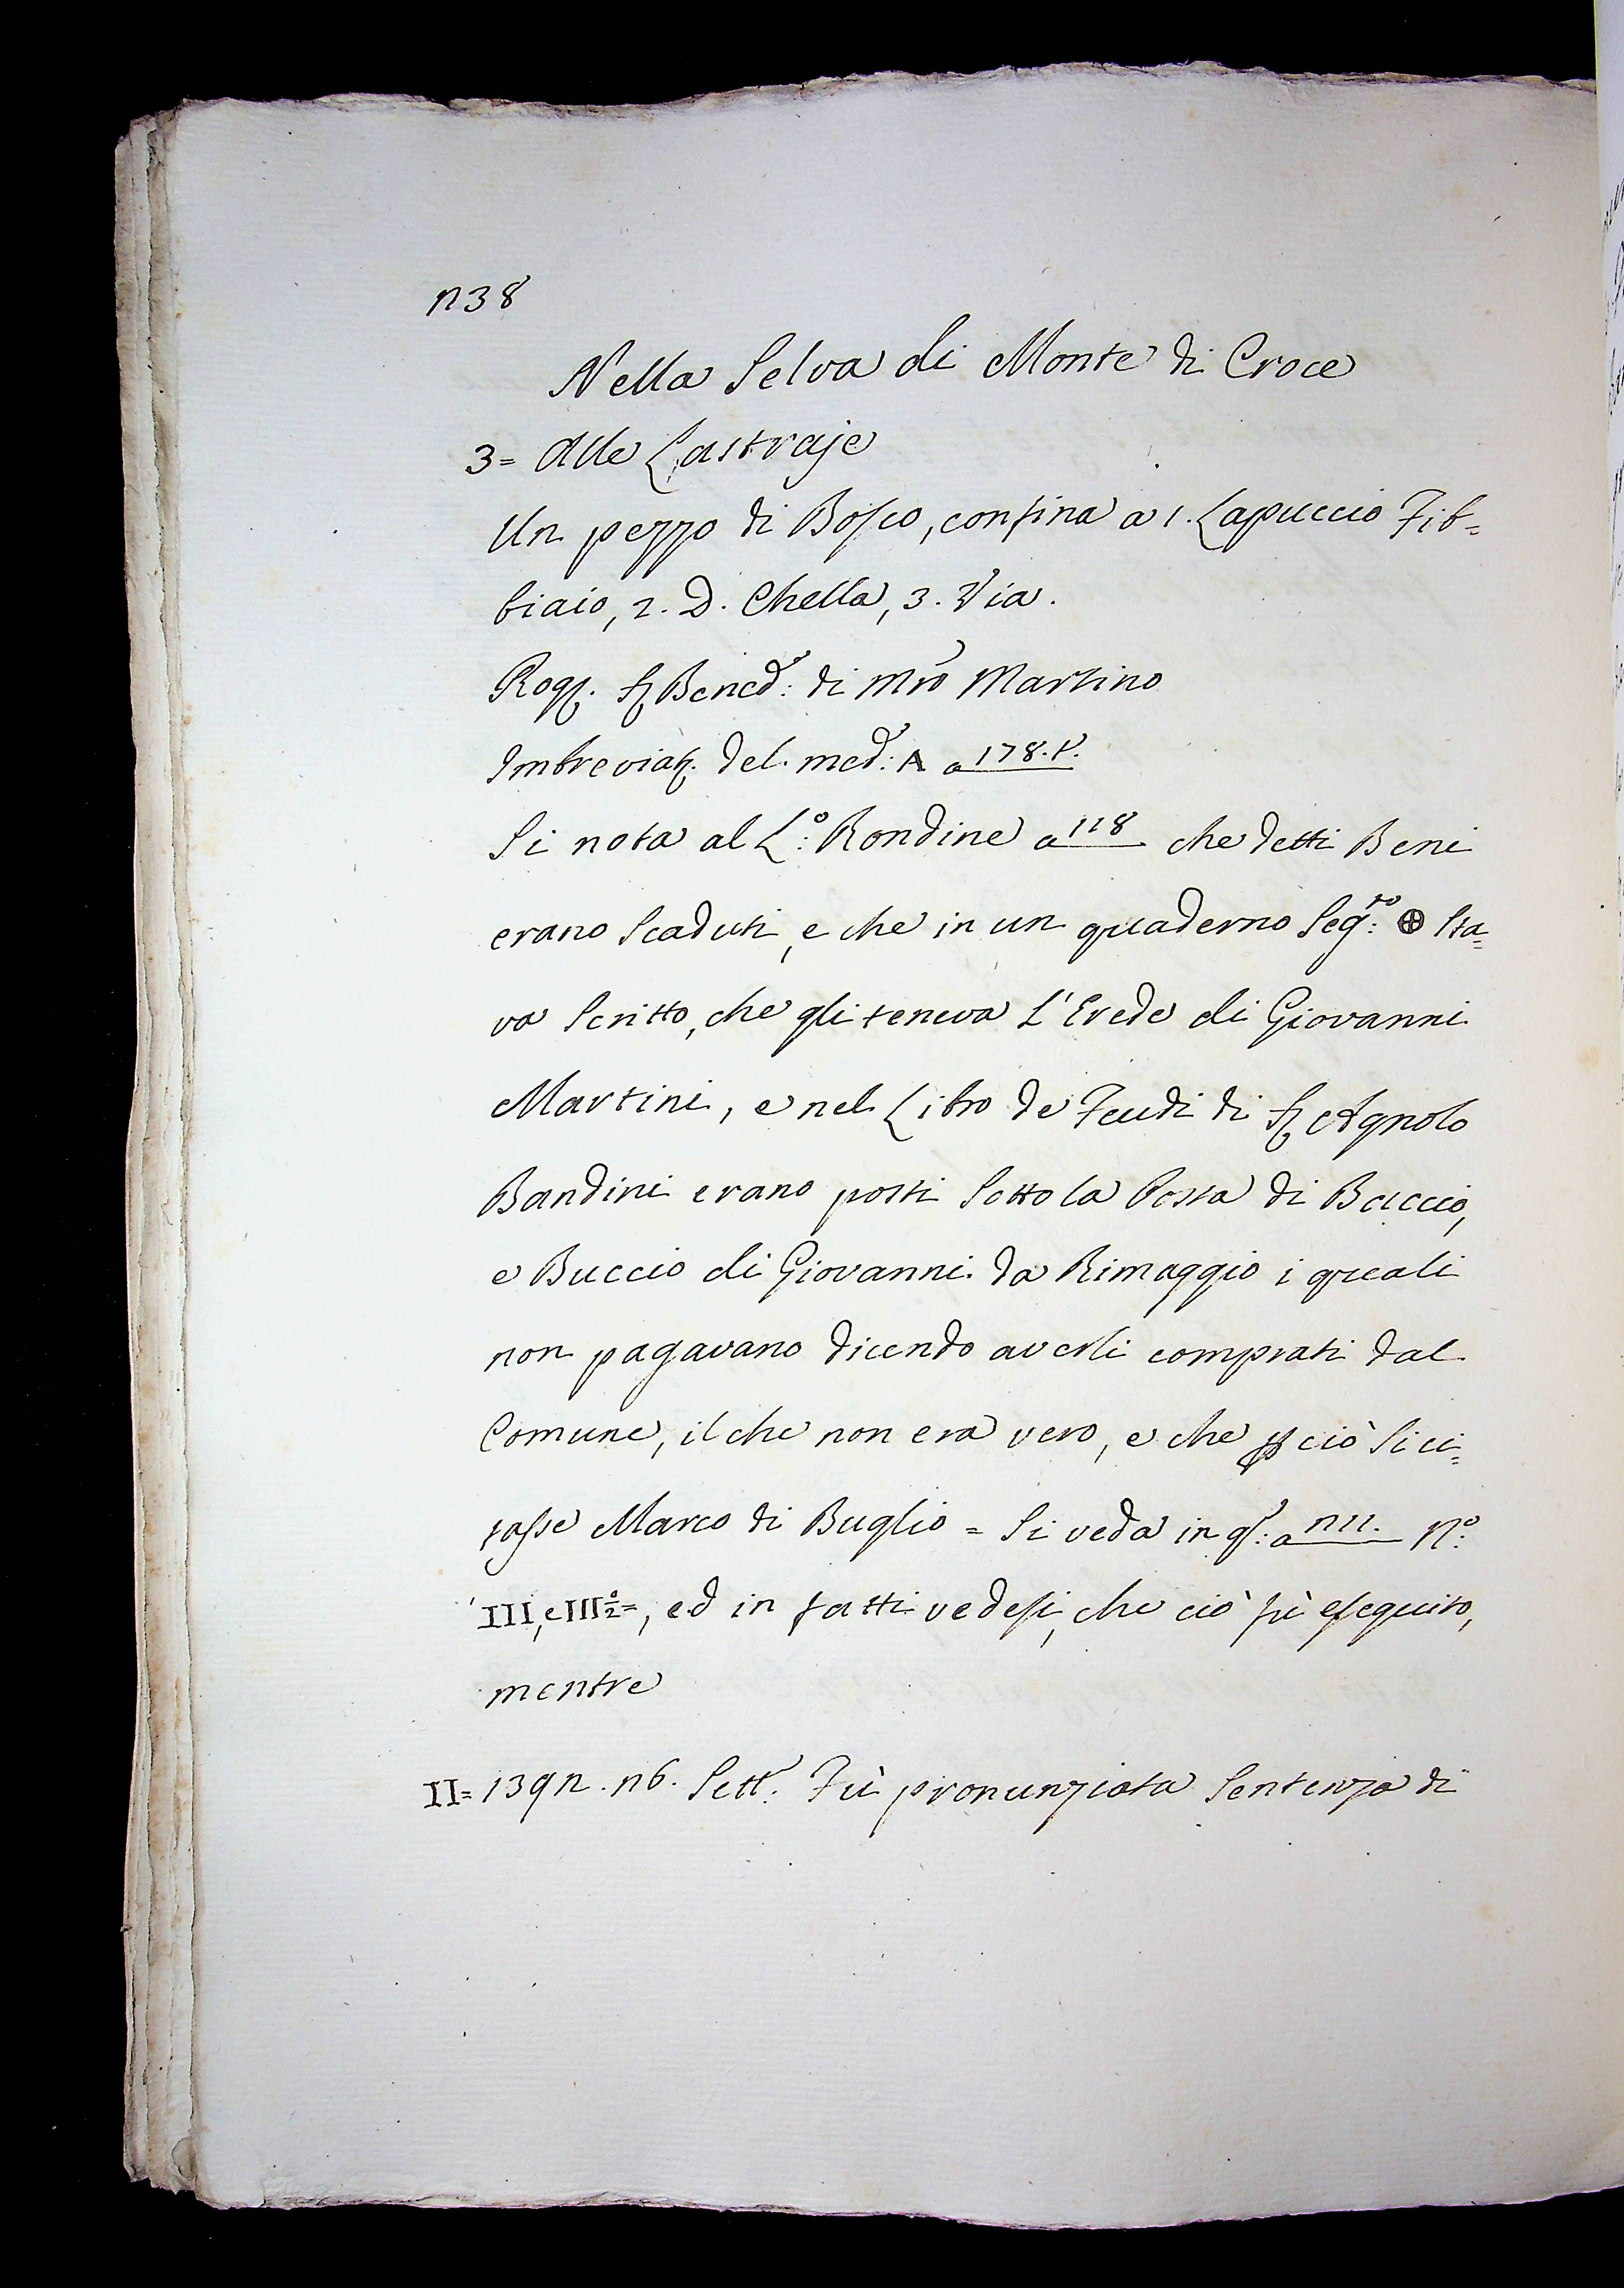 238
Nella Selva di Monte di Croce
3= Alle Lastraje
Un pezzo di Bosco, confina a 1. Lapuccio Fib=
biaio, 2. D. Chella, 3. Via.
Rog. S. Bened: di Mro Martino
Imbreviat. del med: A a 178.t.
Si nota al L:o Rondine a 118 che detti Beni
erano Scaduti, e che in un quaderno Seg:to ⊕ Sta=
va Scritto, che gli teneva L'Erede di Giovanni
Martini, e nel Libro de Feudi di S. Agnolo
Bandini erano posti Sotto la Posta di Baccio,
e Buccio di Giovanni da Rimaggio i quali
non pagavano dicendo averli comprati dal
Comune, il che non era vero, e che p ciò Si ci=
tasse Marco di Buglio = Si veda in q: a 211. N:o
III, e III 2=, ed in fatti vedesi, che ciò fù eseguito,
mentre
II= 1392. 26. Sett: Fù pronunziata Sentenza di